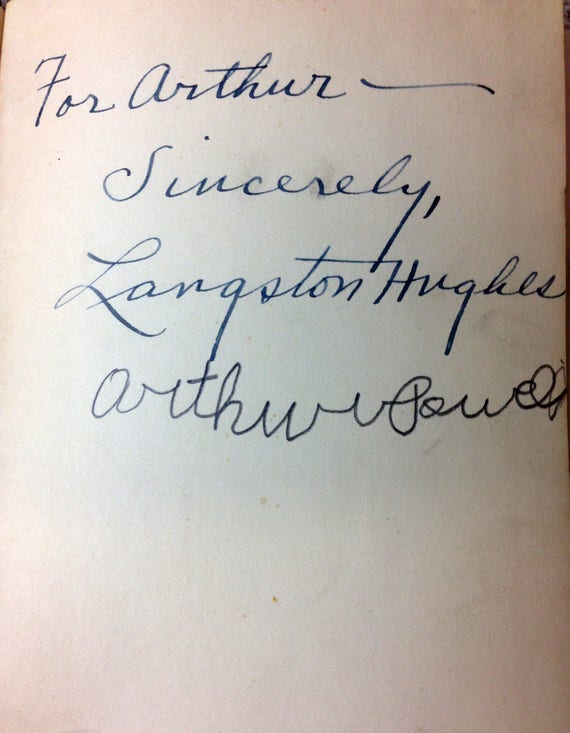 For Arthur —
Sincerely,
Langston Hughes
Arthur